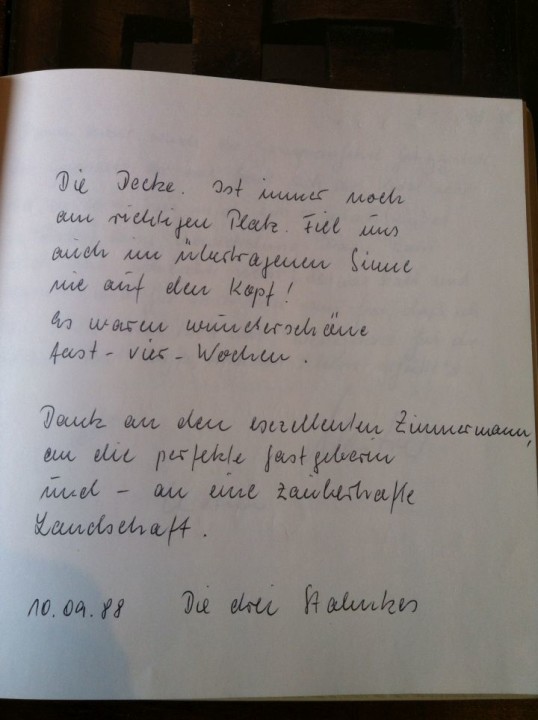 Die Decke. Ist immer noch
am richtigen Platz. Fiel uns
auch im übertragenen Sinne
nie auf den Kopf!
Es waren wunderschöne
fast - vier - Wochen.
Dank an den exzellenten Zimmermann,
an die perfekte Gastgeberin
und - an eine zauberhafte
Landschaft.
10.09.88 Die drei